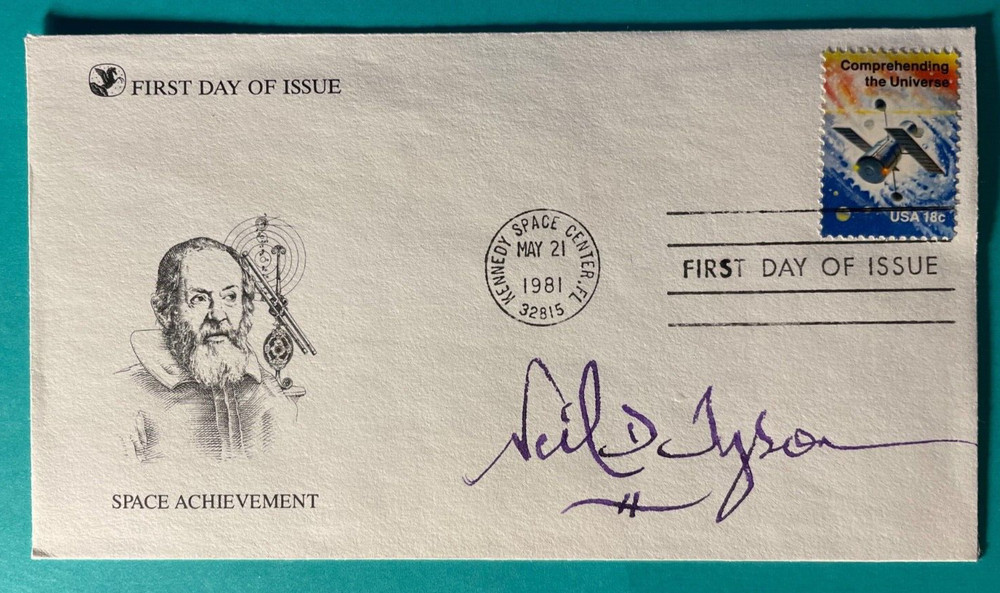 FIRST DAY OF ISSUE
Comprehending
the Universe
USA 18c
KENNEDY SPACE CENTER, FL
MAY 21
1981
32815
FIRST DAY OF ISSUE
Neil D Tyson
SPACE ACHIEVEMENT